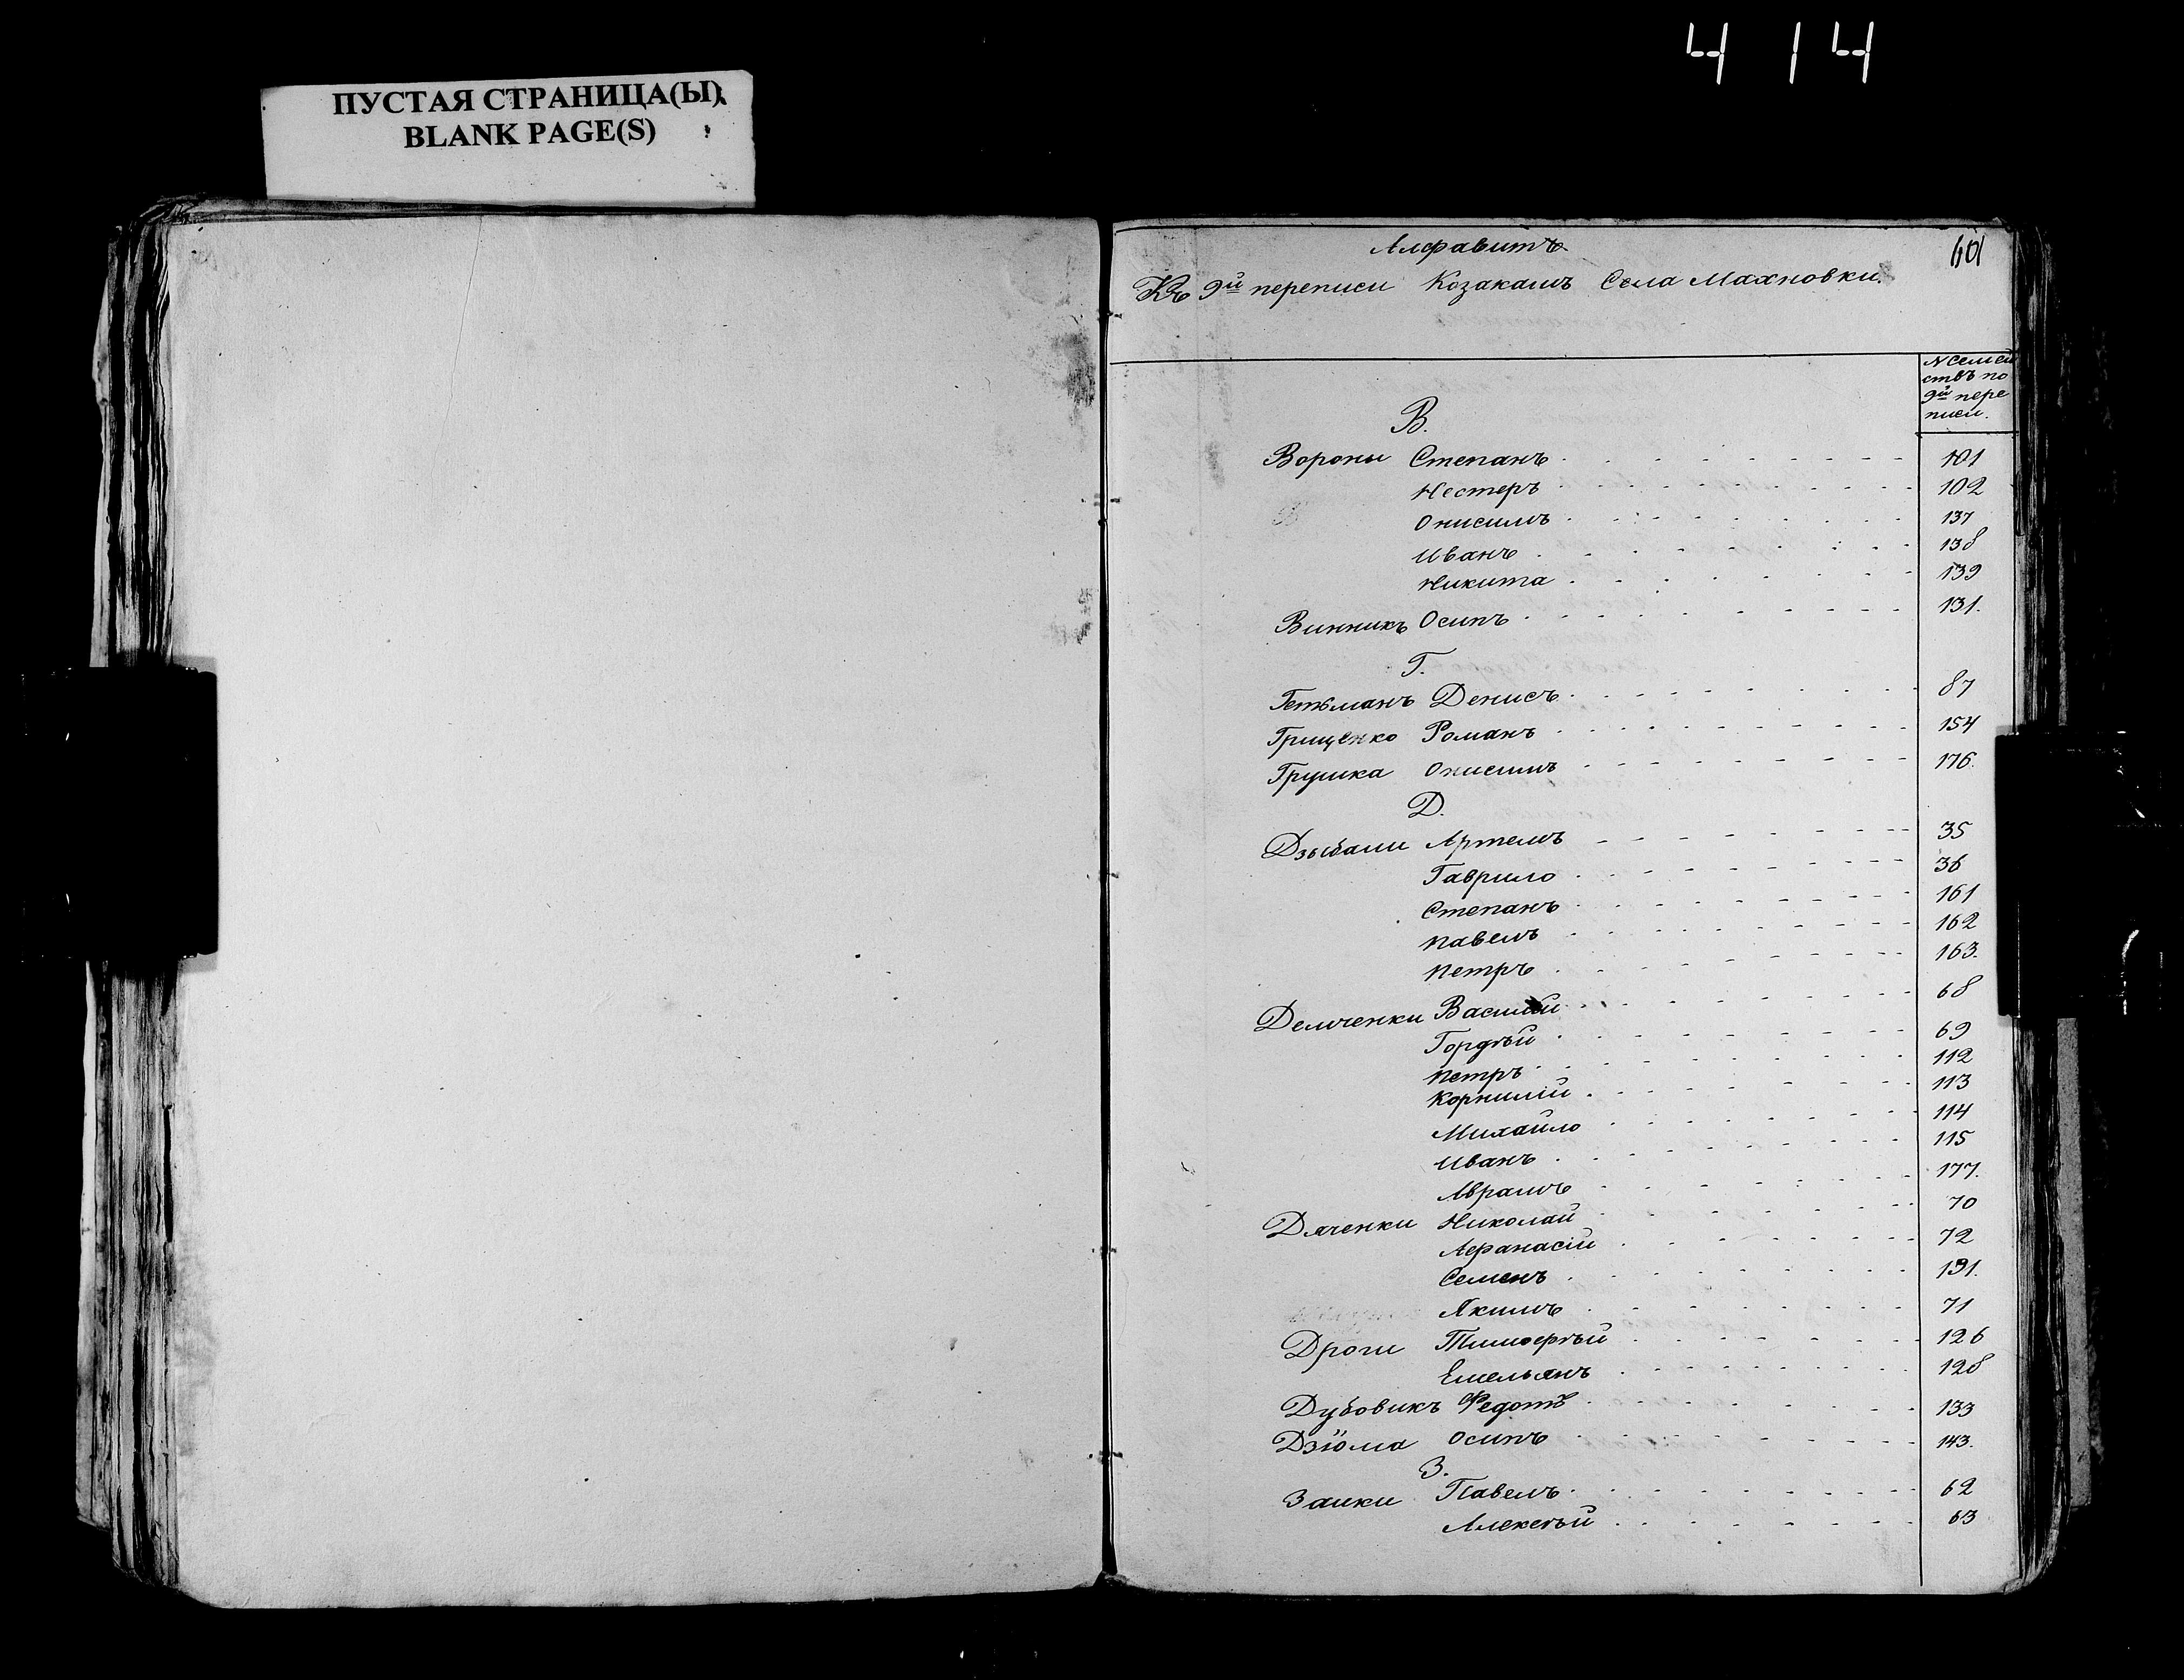 4 14
ПУСТАЯ СТРАНИЦА(Ы)
BLANK PAGE(S)
601
Алфавитъ
Къ 9й переписи Козакамъ Села Махновки.
N Семей
ствъ по
9й пере
писи.
В.
Вороны Степанъ 101
Нестеръ 102
Онисимъ 137
Иванъ 138
Никита 139
Винникъ Осипъ 131.
Г.
Гетьманъ Денисъ 87
Грищенко Романъ 154
Грушка Онисимъ 176
Д.
Дзыбами Артемъ 35
Гаврило 36
Степанъ 161
Павелъ 162
Петръ 163.
Демченки Василій 68
Гордѣй 69
Петръ 112
Корнилій 113
Михайло 114
Иванъ 115
Аврамъ 177.
Дяченки Николай 70
Афанасій 72
Семенъ 191.
Якимъ 71
Дроги Тимофѣй 126
Емельянъ 128
Дубовикъ Федотъ 133
Дзюма Осипъ 143.
З.
Заики Павелъ 62
Алексѣй 63